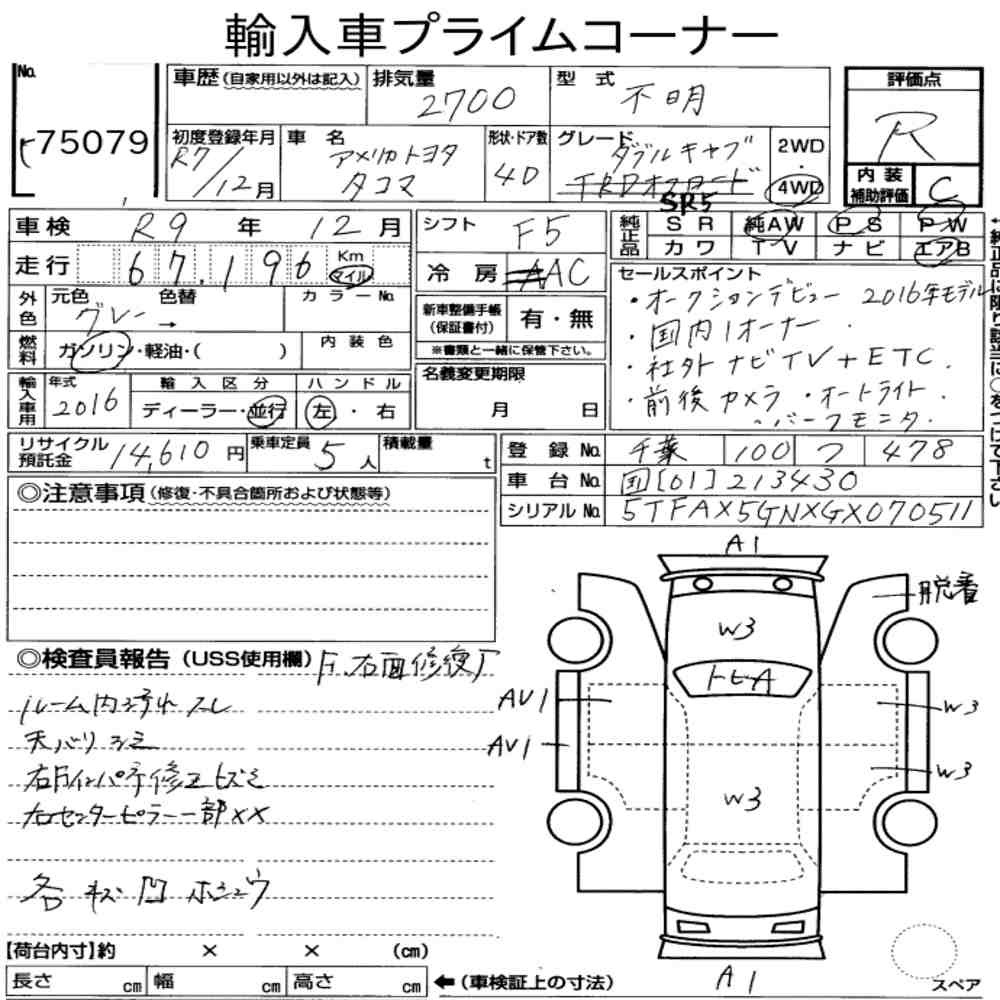 輸入車プライムコーナー
No. 75079
車歴(自家用以外は記入) 排気量 2700 型式 不明
評価点 R
初度登録年月 R7/12月 車名 アメリカトヨタ タコマ 形状・ドア数 4D グレード ダブルキャブ TRDオフロード SR5 2WD・4WD
内装補助評価 C
車検 R9年 12月 シフト F5
純正品 SR 純AW PS PW
カワ TV ナビ エアB
走行 67,196 Km マイル 冷房 AAC
セールスポイント
・オークションデビュー 2016年モデル
・国内1オーナー
・社外ナビTV+ETC
・前後カメラ ・オートライト
〃バーフモニタ
←純正品に限り該当に○をつけて下さい
外色 元色 グレー → 色替 カラーNo.
新車整備手帳(保証書付) 有・無
※書類と一緒に保管下さい。
燃料 ガソリン・軽油・( ) 内装色
輸入車用 年式 2016 輸入区分 ディーラー・並行 ハンドル 左・右
名義変更期限 月 日
リサイクル預託金 14,610円 乗車定員 5人 積載量 t
登録No. 千葉 100 フ 478
車台No. 国[01]213430
シリアルNo. 5TFAX5GNXGX070511
◎注意事項(修復・不具合箇所および状態等)
◎検査員報告(USS使用欄) F.右面修復歴
ルーム内汚れ スレ
天バリ シミ
右Fインパネ修正ヒズミ
右センターピラー一部XX
各キズ凹 ホシュウ
A1
脱着
W3
トビA
AV1
W3
AV1
W3
W3
A1
スペア
【荷台内寸】約 × × (cm)
長さ cm 幅 cm 高さ cm ←(車検証上の寸法)